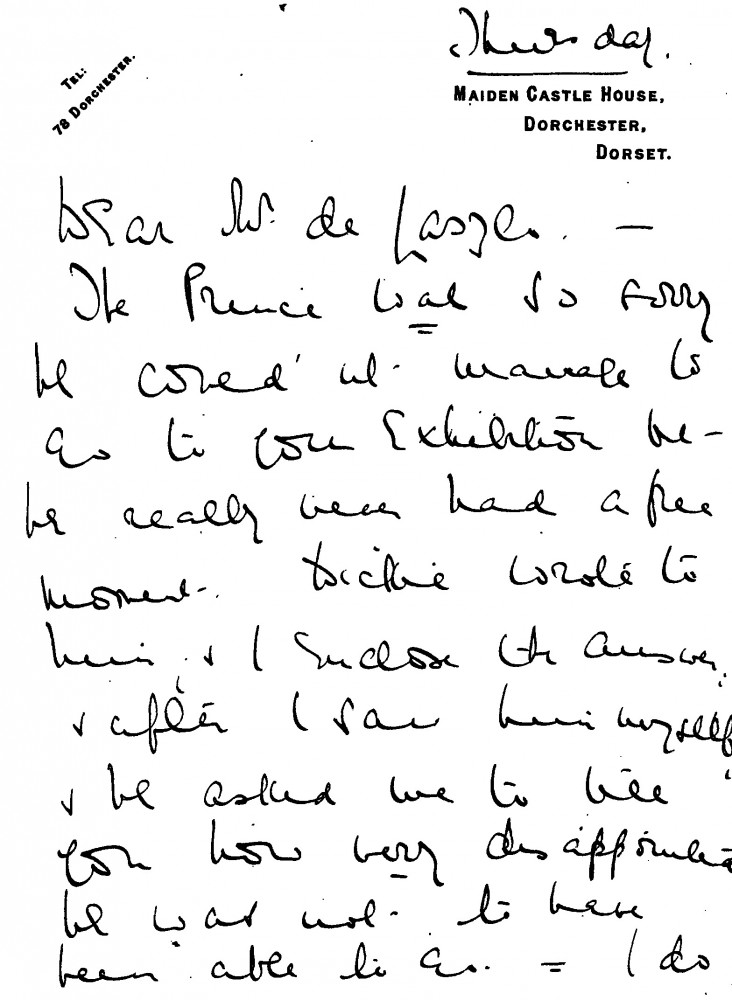 Thursday.
TEL:
78 DORCHESTER.
MAIDEN CASTLE HOUSE,
DORCHESTER,
DORSET.
Dear Mr. de Laszlo. —
The Prince was so sorry
he could not manage to
go to your Exhibition but –
he really never had a free
moment. Dickie wrote to
him & I enclose the answer,
& after I saw him myself
& he asked me to tell
you how very disappointed
he was not to have
been able to go. = I do